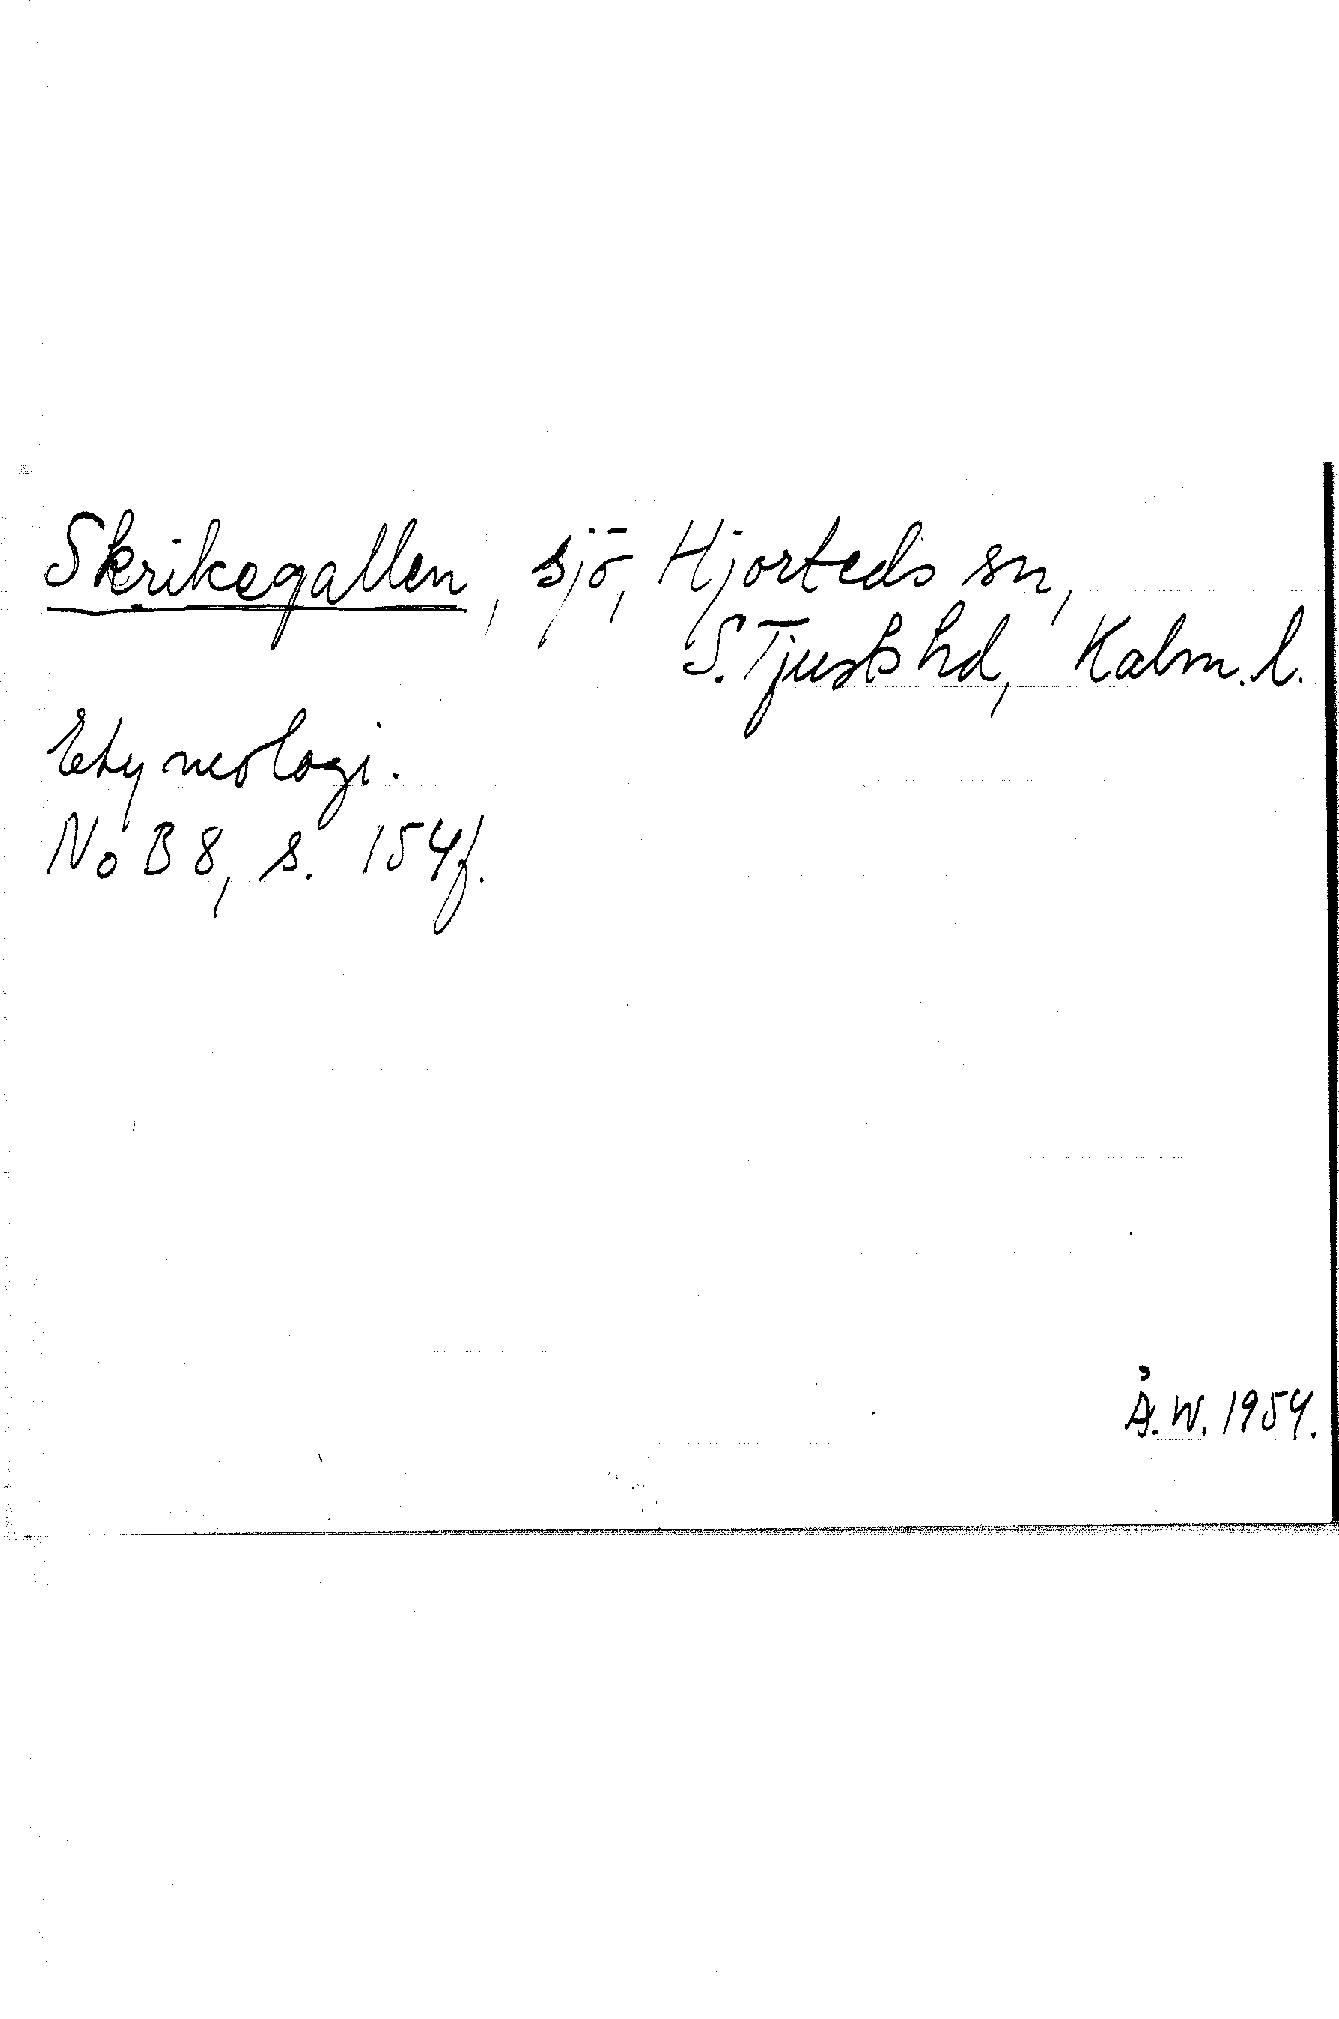 Skrikegallen, sjö, Hjorteds sn,
S. Tjusts hd, Kalm. l.
Etymologi.
NoB 8, s. 154f.
Å.W. 1954.